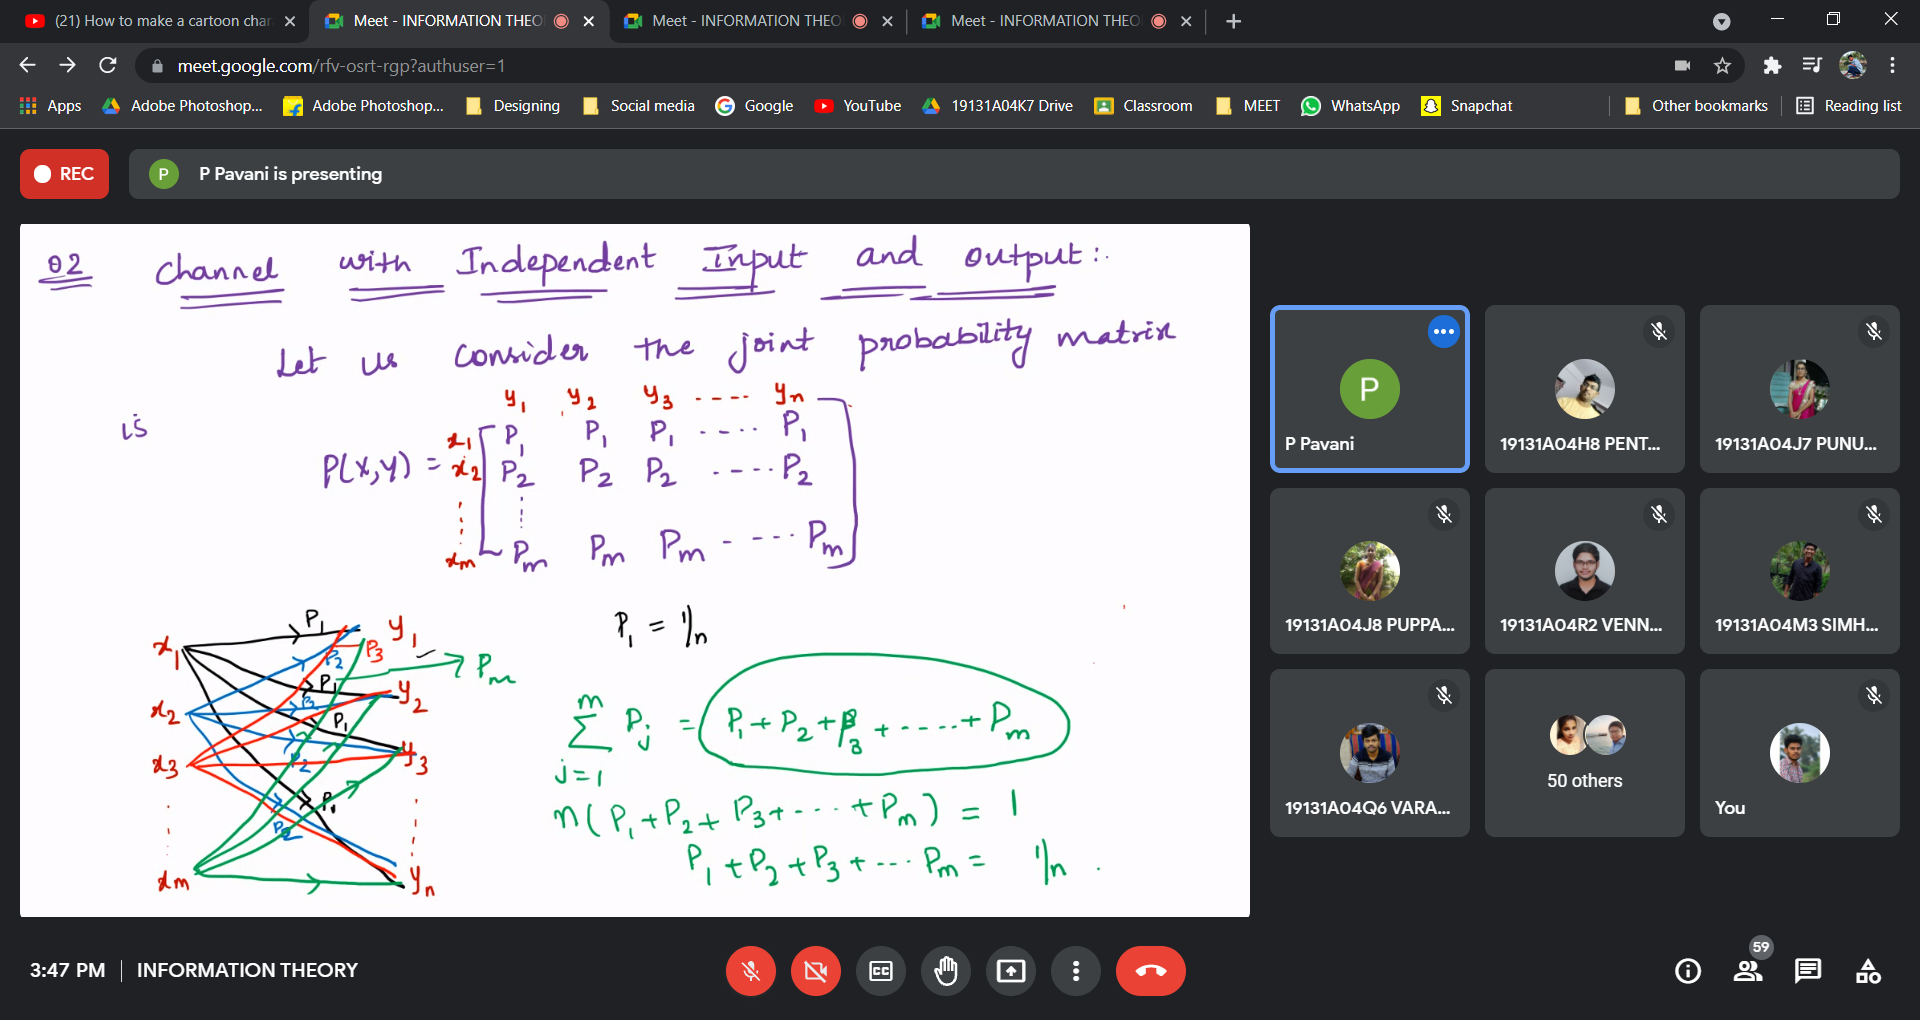 (21) How to make a cartoon char
Meet - INFORMATION THEO
Meet - INFORMATION THEO
Meet - INFORMATION THEO
meet.google.com/rfv-osrt-rgp?authuser=1
Apps
Adobe Photoshop...
Adobe Photoshop...
Designing
Social media
Google
YouTube
19131A04K7 Drive
Classroom
MEET
WhatsApp
Snapchat
Other bookmarks
Reading list
REC
P
P Pavani is presenting
02 Channel with Independent Input and Output:.
Let us consider the joint probability matrix
is
y₁ y₂ y₃ ---- yₙ
x₁ P₁ P₁ P₁ ---- P₁
P(x,y) = x₂ P₂ P₂ P₂ ---- P₂
xₘ Pₘ Pₘ Pₘ ----- Pₘ
x₁ P₁ y₁
P₂ P₃
P₁ → Pₘ
x₂ P₂ y₂
P₁
x₃ P₂ y₃
P₁
P₂
xₘ yₙ
P₁ = 1/n
m
∑ Pⱼ = P₁ + P₂ + P₃ + ----- + Pₘ
j=1
n(P₁+P₂+P₃+----+Pₘ) = 1
P₁+P₂+P₃+--- Pₘ = 1/n .
P
P Pavani
19131A04H8 PENT...
19131A04J7 PUNU...
19131A04J8 PUPPA...
19131A04R2 VENN...
19131A04M3 SIMH...
19131A04Q6 VARA...
50 others
You
3:47 PM | INFORMATION THEORY
CC
59